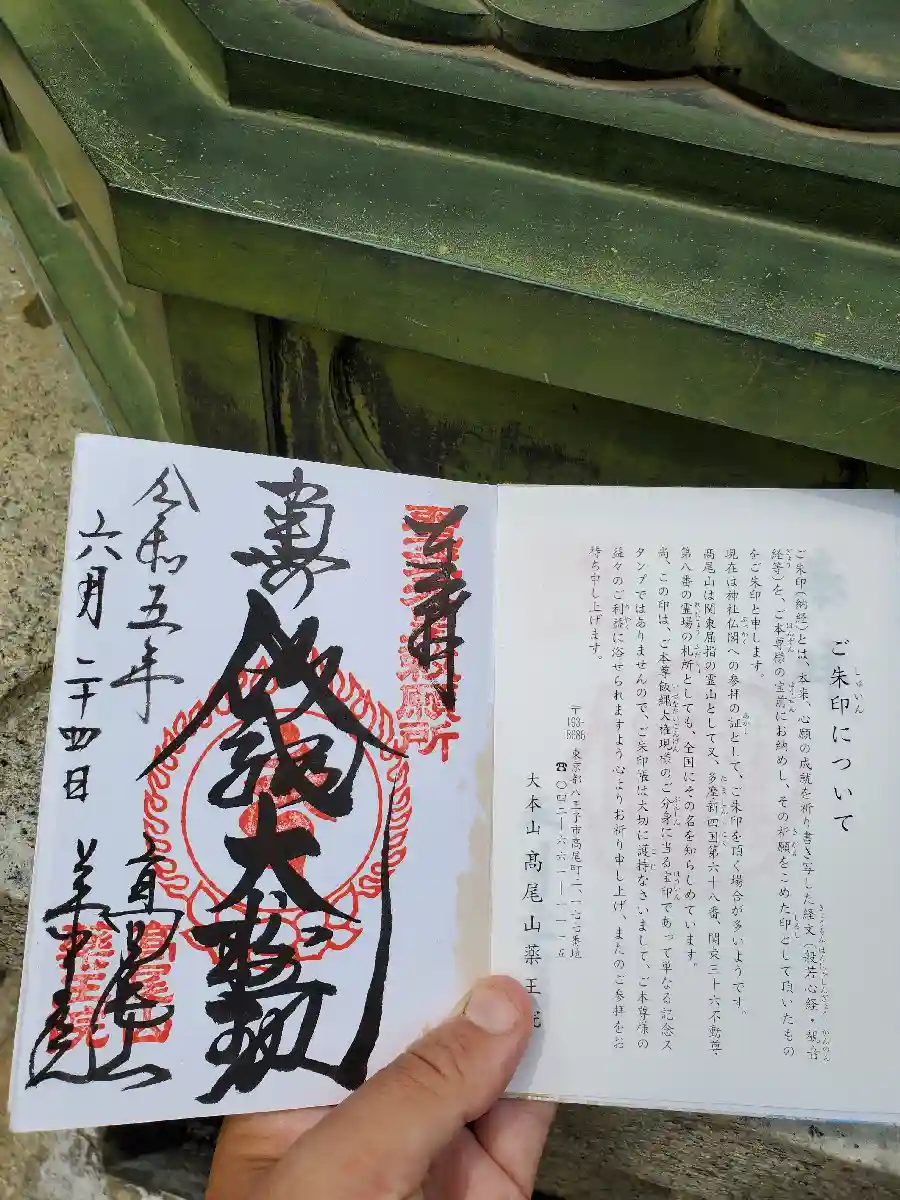 ご朱印について
ご朱印(納経)とは、本来、心願の成就を祈り書き写した経文(般若心経・観音
経等)を、ご本尊様の宝前にお納めし、その祈願をこめた印として頂いたもの
をご朱印と申します。
現在は神社仏閣への参拝の証として、ご朱印を頂く場合が多いようです。
高尾山は関東屈指の霊山として又、多摩新四国第六十八番、関東三十六不動尊
第八番の霊場の札所としても、全国にその名を知らしめています。
尚、この印は、ご本尊飯縄大権現様のご分身に当る宝印であって単なる記念ス
タンプではありませんので、ご朱印帳は大切に護持なさいまして、ご本尊様の
益々のご利益に浴せられますよう心よりお祈り申し上げ、またのご参拝をお
待ち申し上げます。
〒193-8686 東京都八王子市高尾町二一七七番地
☎〇四二-六六一-一一一五
大本山 髙尾山薬王院
奉拝
飯縄大権現
令和五年
六月二十四日
髙尾山
薬王院